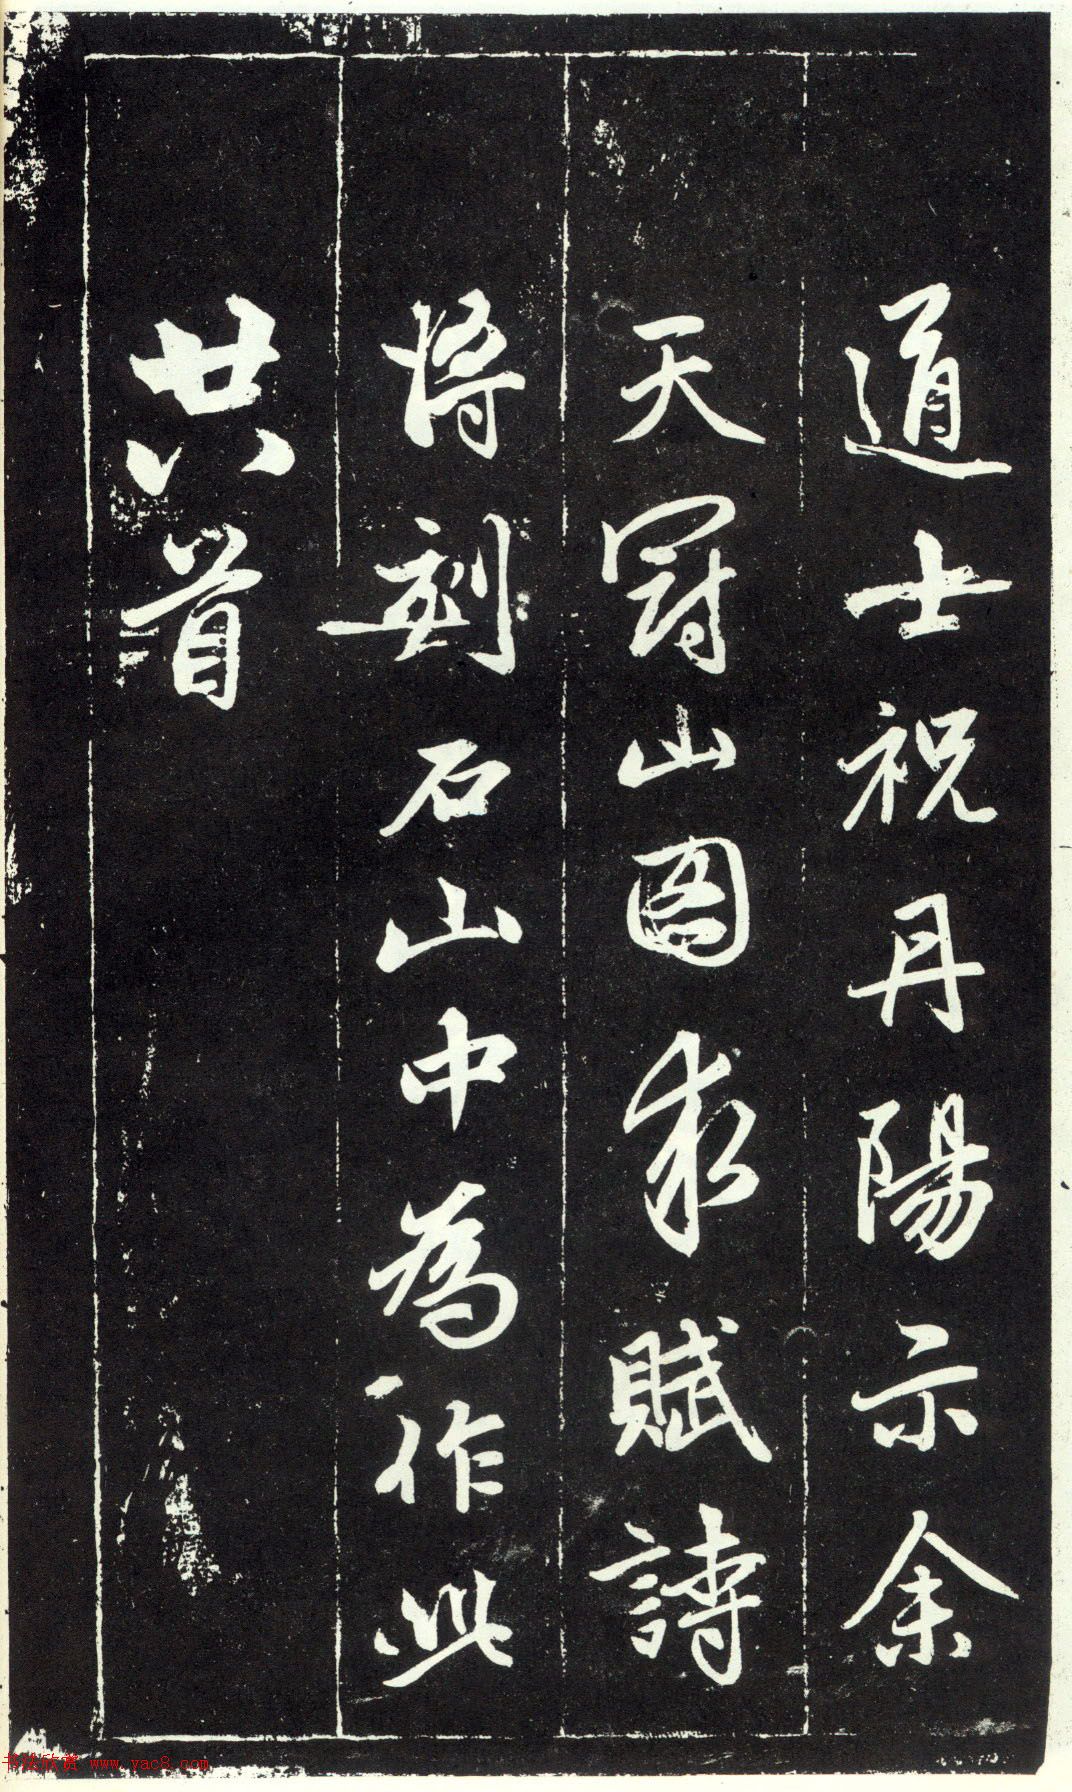 道士祝丹陽示余
天冠山圖求賦詩
將刻石山中為作此
廿八首
书法欣赏 www.yac8.com